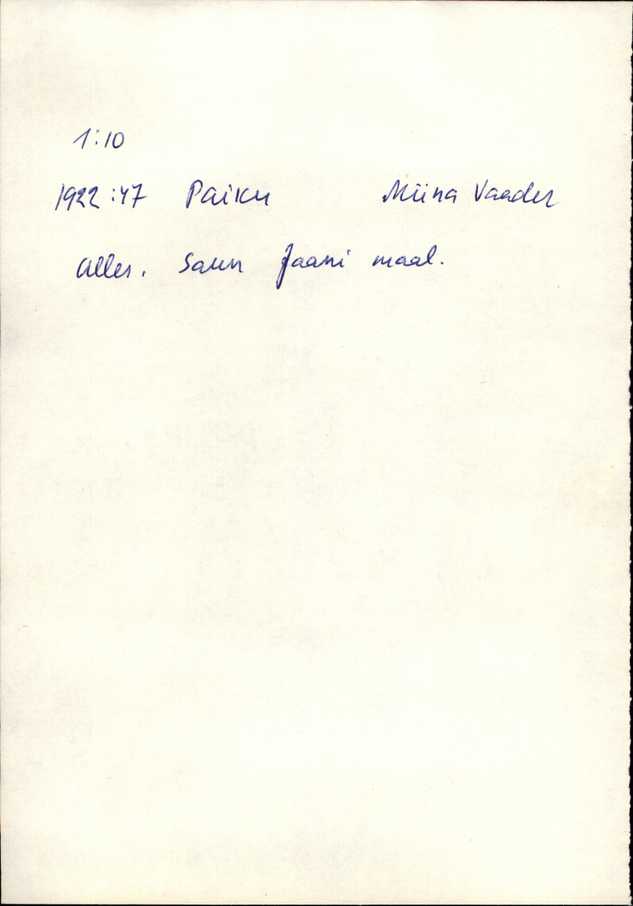 1:10
1922:47 Paiku Miina Vaader
Alles. Saun Jaani maal.